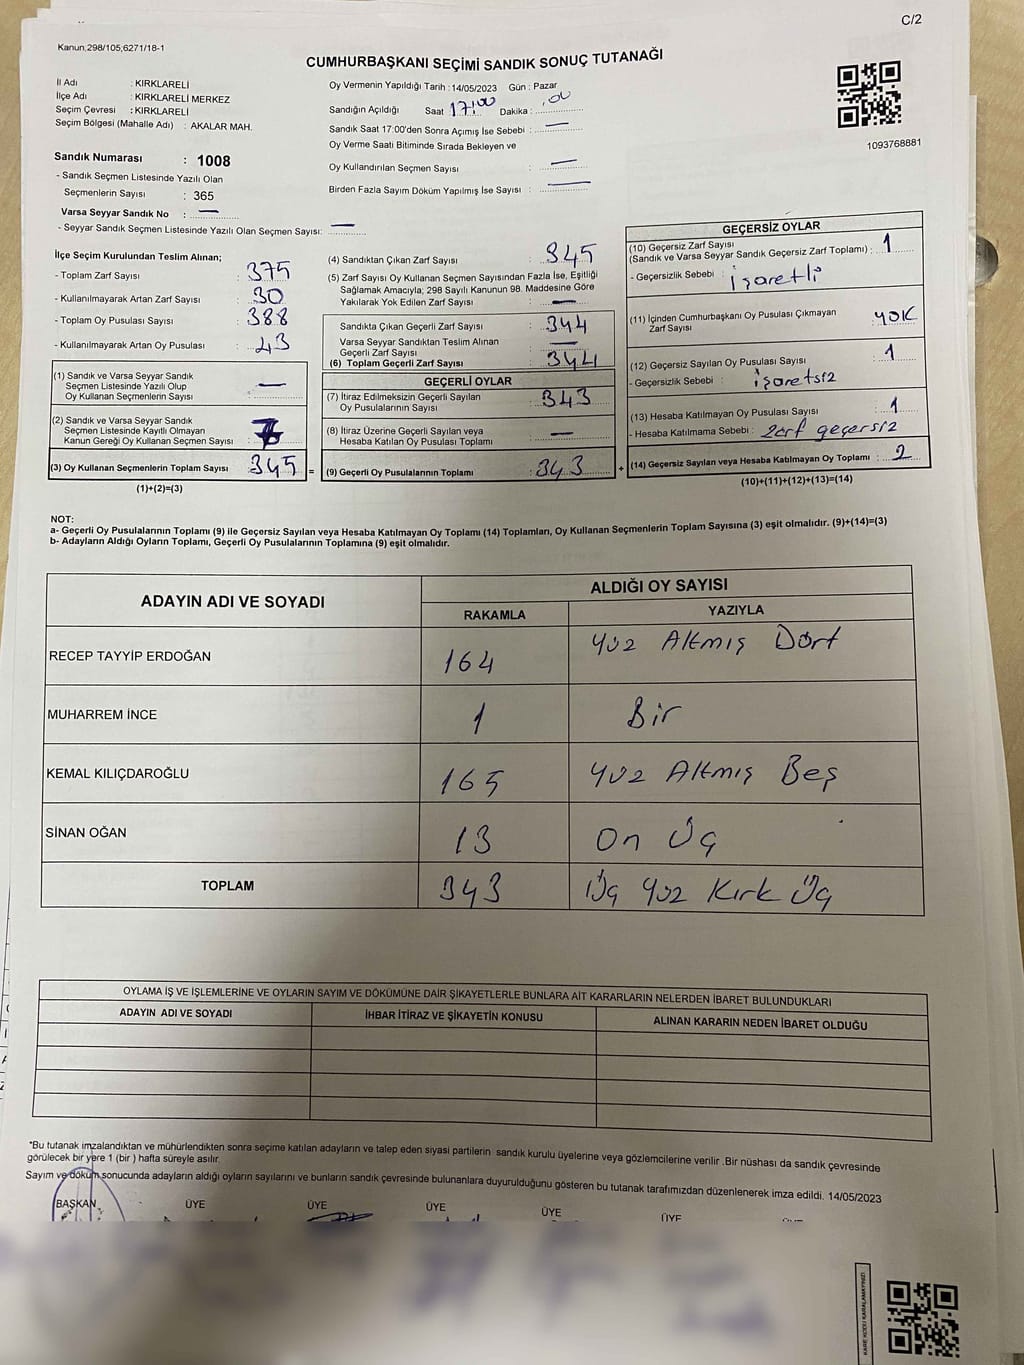 C/2
Kanun,298/105,6271/18-1
CUMHURBAŞKANI SEÇİMİ SANDIK SONUÇ TUTANAĞI
İl Adı : KIRKLARELİ
İlçe Adı : KIRKLARELİ MERKEZ
Seçim Çevresi : KIRKLARELİ
Seçim Bölgesi (Mahalle Adı) : AKALAR MAH.
Sandık Numarası : 1008
- Sandık Seçmen Listesinde Yazılı Olan
Seçmenlerin Sayısı : 365
Varsa Seyyar Sandık No : —
- Seyyar Sandık Seçmen Listesinde Yazılı Olan Seçmen Sayısı: —
Oy Vermenin Yapıldığı Tarih : 14/05/2023 Gün : Pazar
Sandığın Açıldığı Saat 17:00 Dakika : .00
Sandık Saat 17:00'den Sonra Açımış İse Sebebi : —
Oy Verme Saati Bitiminde Sırada Bekleyen ve
Oy Kullandırılan Seçmen Sayısı : —
Birden Fazla Sayım Döküm Yapılmış İse Sayısı : —
1093768881
İlçe Seçim Kurulundan Teslim Alınan;
- Toplam Zarf Sayısı : 375
- Kullanılmayarak Artan Zarf Sayısı : 30
- Toplam Oy Pusulası Sayısı : 388
- Kullanılmayarak Artan Oy Pusulası : 43
(1) Sandık ve Varsa Seyyar Sandık
Seçmen Listesinde Yazılı Olup
Oy Kullanan Seçmenlerin Sayısı : —
(2) Sandık ve Varsa Seyyar Sandık
Seçmen Listesinde Kayıtlı Olmayan
Kanun Gereği Oy Kullanan Seçmen Sayısı :
(3) Oy Kullanan Seçmenlerin Toplam Sayısı : 345 =
(1)+(2)=(3)
(4) Sandıktan Çıkan Zarf Sayısı : 345
(5) Zarf Sayısı Oy Kullanan Seçmen Sayısından Fazla İse, Eşitliği
Sağlamak Amacıyla; 298 Sayılı Kanunun 98. Maddesine Göre
Yakılarak Yok Edilen Zarf Sayısı : —
Sandıkta Çıkan Geçerli Zarf Sayısı : 344
Varsa Seyyar Sandıktan Teslim Alınan
Geçerli Zarf Sayısı : —
(6) Toplam Geçerli Zarf Sayısı : 344
GEÇERLİ OYLAR
(7) İtiraz Edilmeksizin Geçerli Sayılan
Oy Pusulalarının Sayısı : 343
(8) İtiraz Üzerine Geçerli Sayılan veya
Hesaba Katılan Oy Pusulası Toplamı : —
(9) Geçerli Oy Pusulalarının Toplamı : 343 +
GEÇERSİZ OYLAR
(10) Geçersiz Zarf Sayısı
(Sandık ve Varsa Seyyar Sandık Geçersiz Zarf Toplamı) : 1
- Geçersizlik Sebebi : işaretli
(11) İçinden Cumhurbaşkanı Oy Pusulası Çıkmayan
Zarf Sayısı : YOK
(12) Geçersiz Sayılan Oy Pusulası Sayısı : 1
- Geçersizlik Sebebi : işaretsiz
(13) Hesaba Katılmayan Oy Pusulası Sayısı : 1
- Hesaba Katılmama Sebebi : zarf geçersiz
(14) Geçersiz Sayılan veya Hesaba Katılmayan Oy Toplamı : 2
(10)+(11)+(12)+(13)=(14)
NOT:
a- Geçerli Oy Pusulalarının Toplamı (9) ile Geçersiz Sayılan veya Hesaba Katılmayan Oy Toplamı (14) Toplamları, Oy Kullanan Seçmenlerin Toplam Sayısına (3) eşit olmalıdır. (9)+(14)=(3)
b- Adayların Aldığı Oyların Toplamı, Geçerli Oy Pusulalarının Toplamına (9) eşit olmalıdır.
ADAYIN ADI VE SOYADI ALDIĞI OY SAYISI
RAKAMLA YAZIYLA
RECEP TAYYİP ERDOĞAN 164 Yüz Altmış Dört
MUHARREM İNCE 1 Bir
KEMAL KILIÇDAROĞLU 165 Yüz Altmış Beş
SİNAN OĞAN 13 On Üç
TOPLAM 343 Üç Yüz Kırk Üç
OYLAMA İŞ VE İŞLEMLERİNE VE OYLARIN SAYIM VE DÖKÜMÜNE DAİR ŞİKAYETLERLE BUNLARA AİT KARARLARIN NELERDEN İBARET BULUNDUKLARI
ADAYIN ADI VE SOYADI İHBAR İTİRAZ VE ŞİKAYETİN KONUSU ALINAN KARARIN NEDEN İBARET OLDUĞU
*Bu tutanak imzalandıktan ve mühürlendikten sonra seçime katılan adayların ve talep eden siyasi partilerin sandık kurulu üyelerine veya gözlemcilerine verilir .Bir nüshası da sandık çevresinde
görülecek bir yere 1 (bir ) hafta süreyle asılır.
Sayım ve döküm sonucunda adayların aldığı oyların sayılarını ve bunların sandık çevresinde bulunanlara duyurulduğunu gösteren bu tutanak tarafımızdan düzenlenerek imza edildi. 14/05/2023
BAŞKAN ÜYE ÜYE ÜYE ÜYE ÜYE
KARE KODU KARALAMAYINIZ!